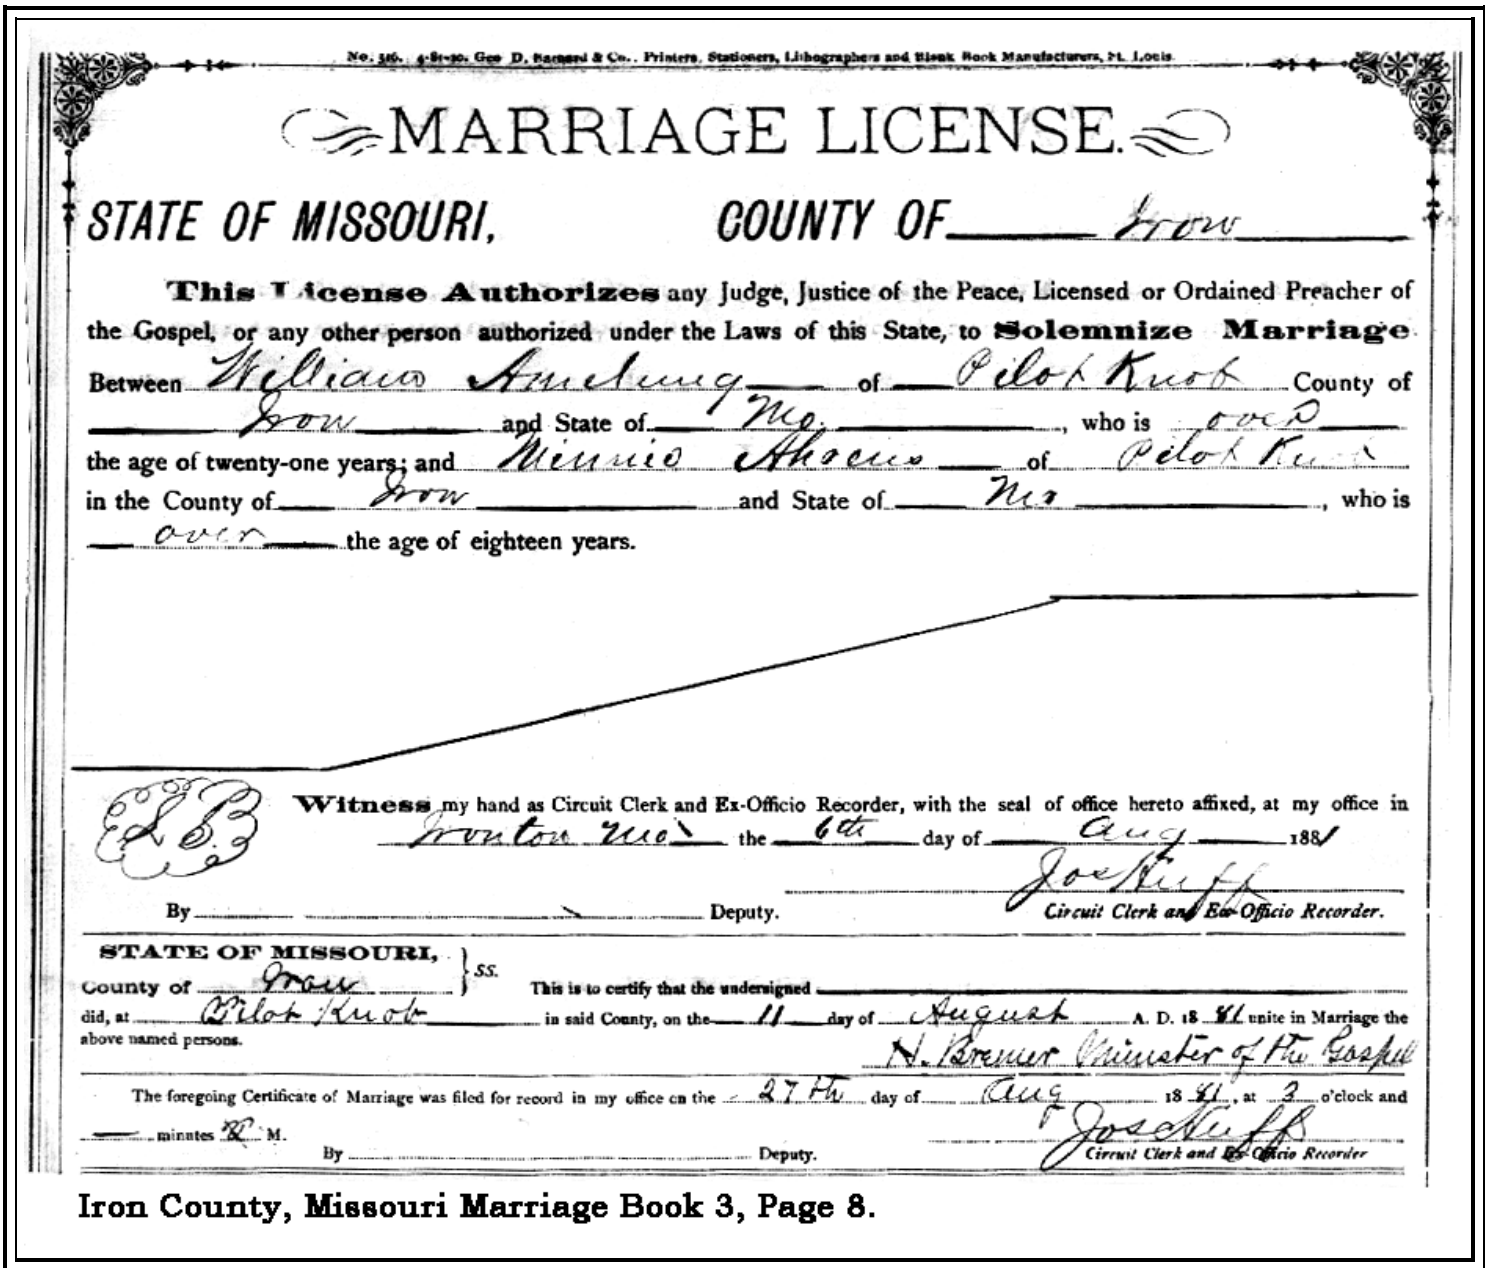 No. 516. 4-81-20. Geo D. Barnard & Co., Printers, Stationers, Lithographers and Blank Book Manufacturers, St. Louis
MARRIAGE LICENSE.
STATE OF MISSOURI, COUNTY OF Iron
This License Authorizes any Judge, Justice of the Peace, Licensed or Ordained Preacher of
the Gospel, or any other person authorized under the Laws of this State, to Solemnize Marriage
Between William Amelung of Pilot Knob County of
Iron and State of Mo. , who is over
the age of twenty-one years; and Minnie Ahrens of Pilot Knob
in the County of Iron and State of Mo , who is
over the age of eighteen years.
L.S.
Witness my hand as Circuit Clerk and Ex-Officio Recorder, with the seal of office hereto affixed, at my office in
Ironton Mo the 6th day of Aug 1881
Jos Huff
By Deputy. Circuit Clerk and Ex-Officio Recorder.
STATE OF MISSOURI,
County of Iron } SS. This is to certify that the undersigned
did, at Pilot Knob in said County, on the 11 day of August A. D. 18 81 unite in Marriage the
above named persons.
H. Bremer Minister of the Gospel
The foregoing Certificate of Marriage was filed for record in my office on the 27th day of Aug 18 81, at 3 o'clock and
minutes P. M. Jos Huff
By Deputy. Circuit Clerk and Ex-Officio Recorder
Iron County, Missouri Marriage Book 3, Page 8.